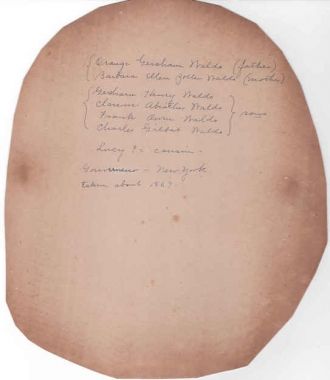 Orange Gersham Waldo (father)
Barbara Ellen Zoller Waldo (mother)
Gersham Henry Waldo
Clarence Abiather Waldo
Frank Orrin Waldo
Charles Gilbert Waldo
sons
Lucy ?- cousin -
Gouverneur - New York
taken about 1867-